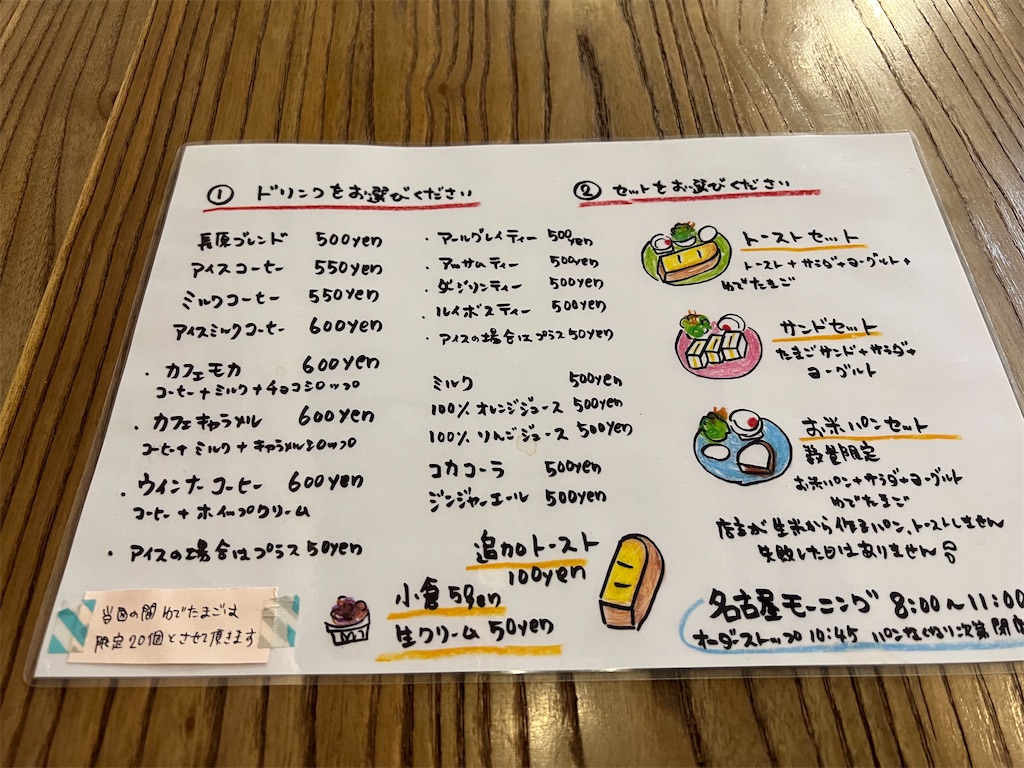 ① ドリンクをお選びください
長原ブレンド 500yen
アイスコーヒー 550yen
ミルクコーヒー 550yen
アイスミルクコーヒー 600yen
・カフェモカ 600yen
コーヒー+ミルク+チョコシロップ
・カフェキャラメル 600yen
コーヒー+ミルク+キャラメルシロップ
・ウィンナーコーヒー 600yen
コーヒー+ホイップクリーム
・アイスの場合はプラス50yen
・アールグレイティー 500yen
・アッサムティー 500yen
・ダージリンティー 500yen
・ルイボスティー 500yen
・アイスの場合はプラス50yen
ミルク 500yen
100%オレンジジュース 500yen
100%りんごジュース 500yen
コカコーラ 500yen
ジンジャーエール 500yen
② セットをお選びください
トーストセット
トースト+サラダ+ヨーグルト+
ゆでたまご
サンドセット
たまごサンド+サラダ+
ヨーグルト
お米パンセット
数量限定
お米パン+サラダ+ヨーグルト
ゆでたまご
店主が生米から作るパン、トーストしません
失敗した日はありません
追加トースト
100yen
小倉 50yen
生クリーム 50yen
当面の間ゆでたまごは
限定20個とさせて頂きます
名古屋モーニング 8:00〜11:00
オーダーストップ 10:45 パンなくなり次第閉店